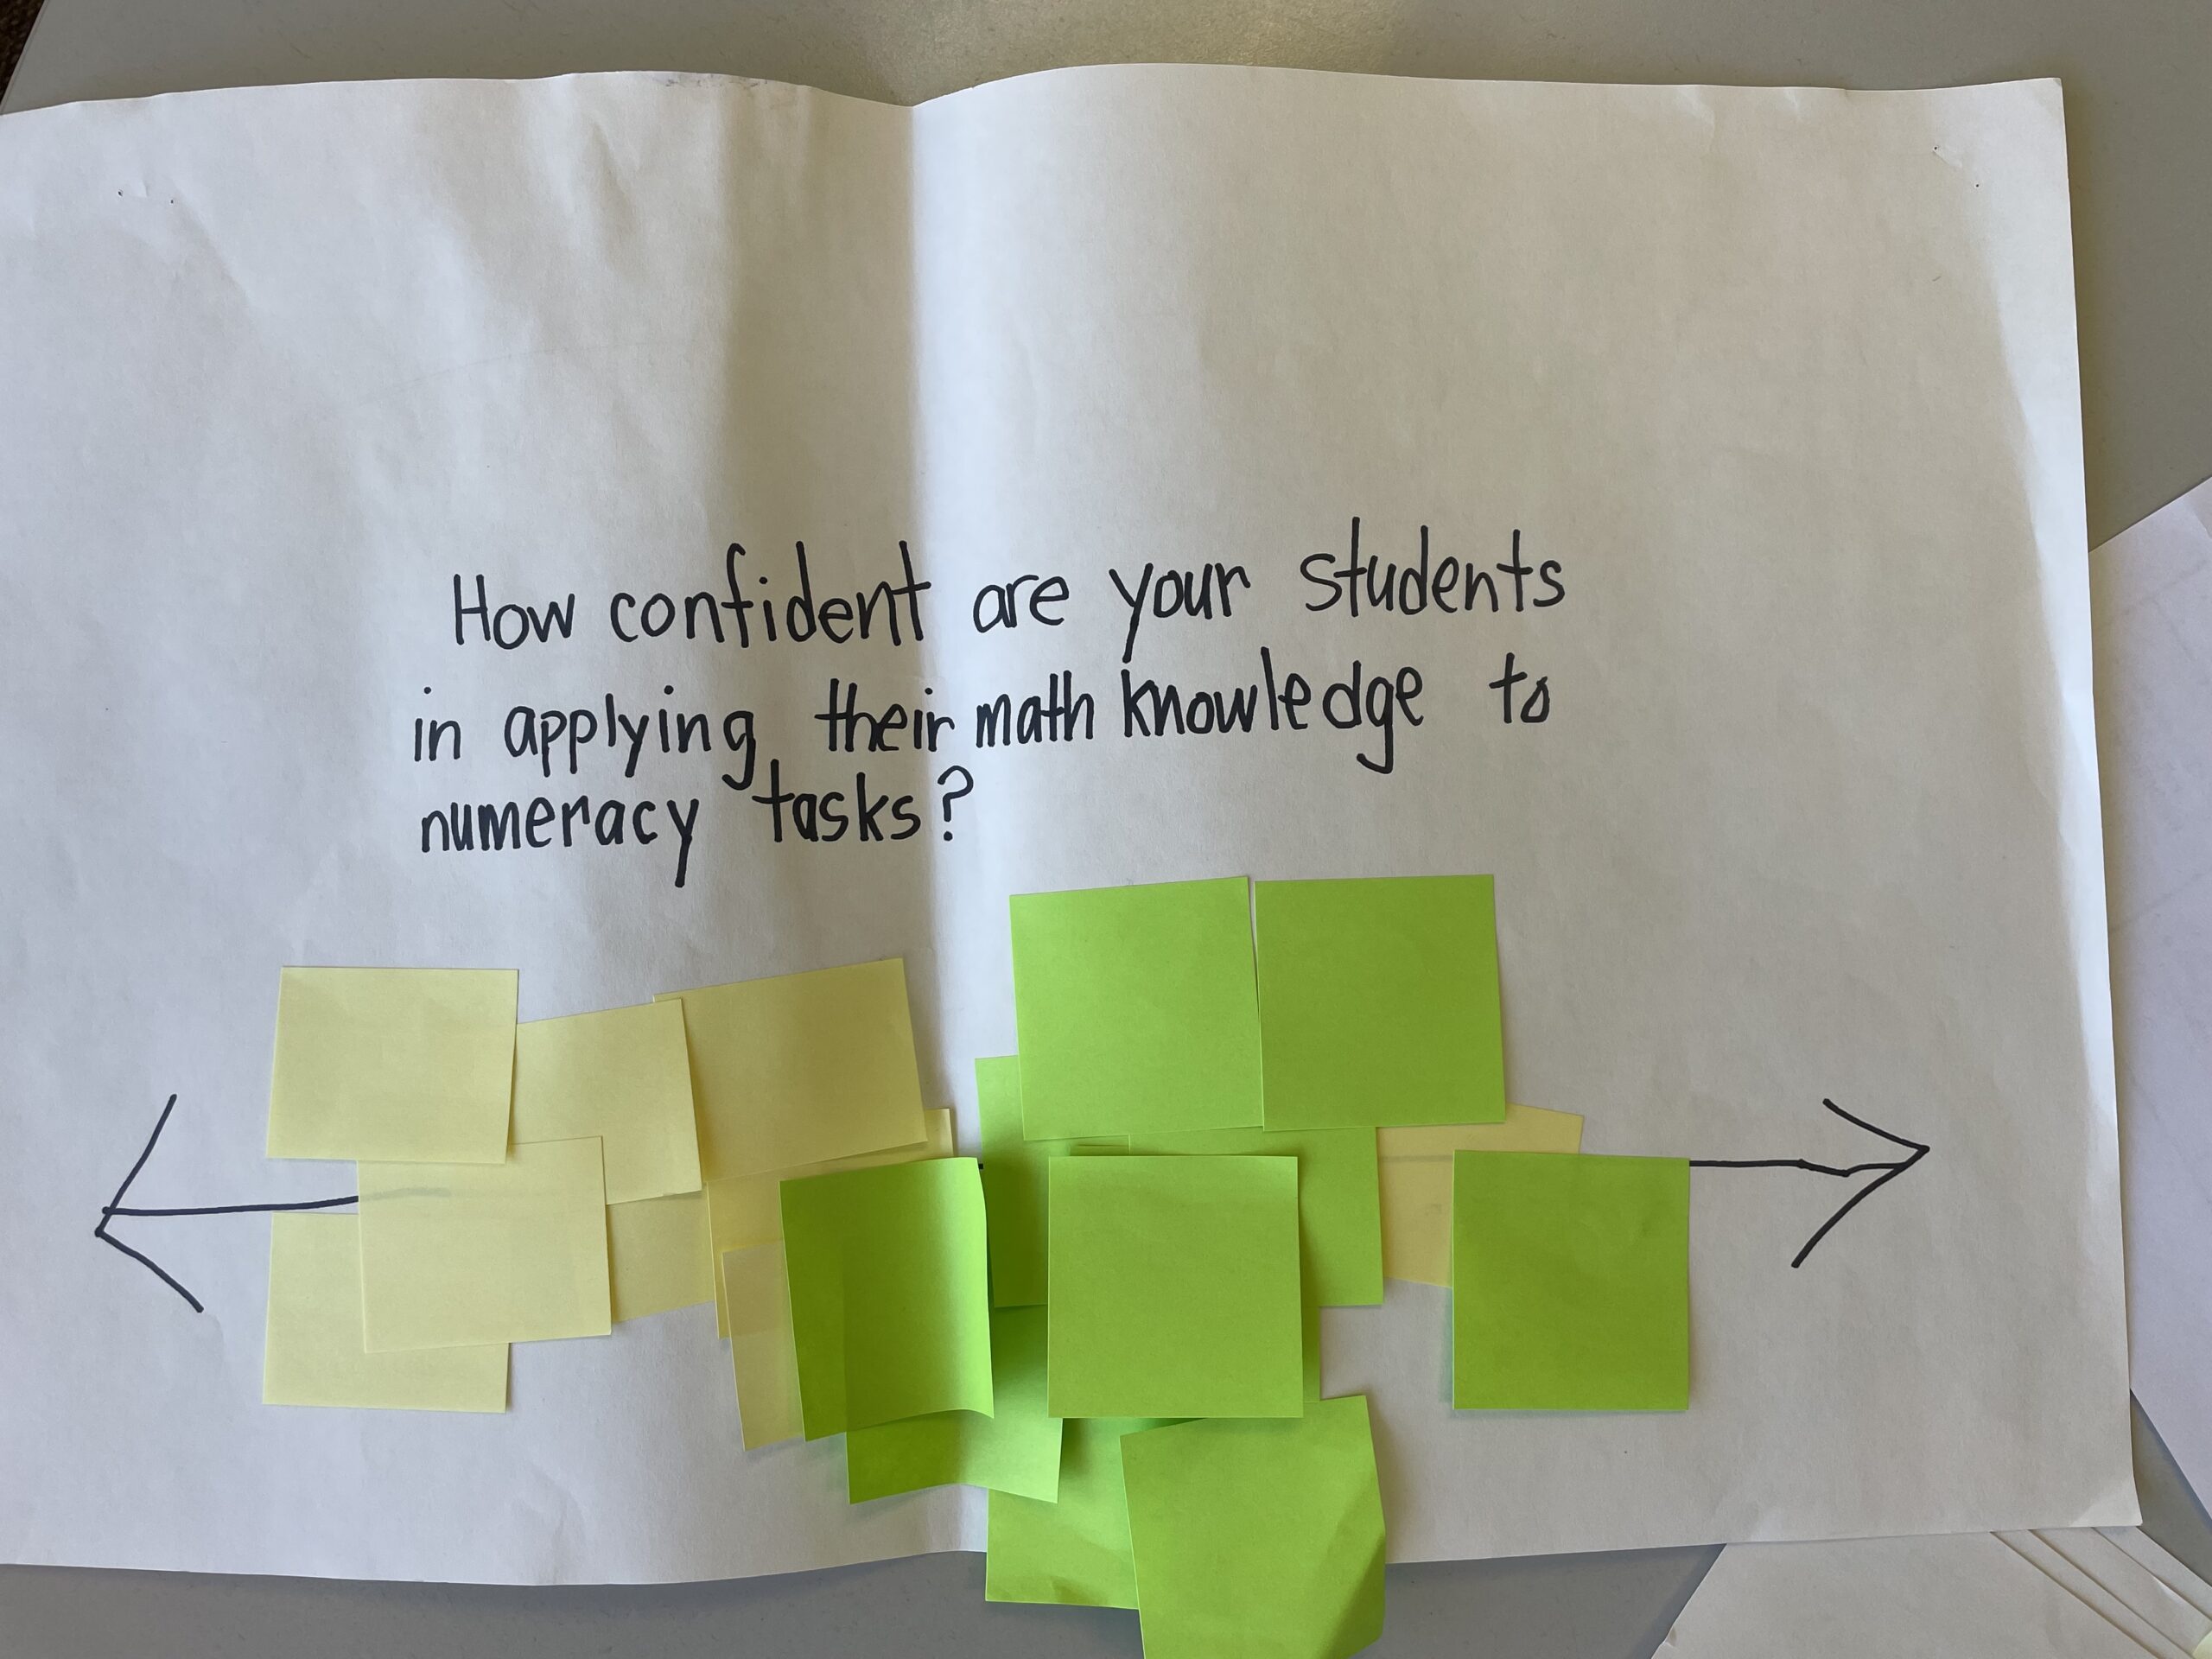 How confident are your students
in applying their math knowledge to
numeracy tasks?